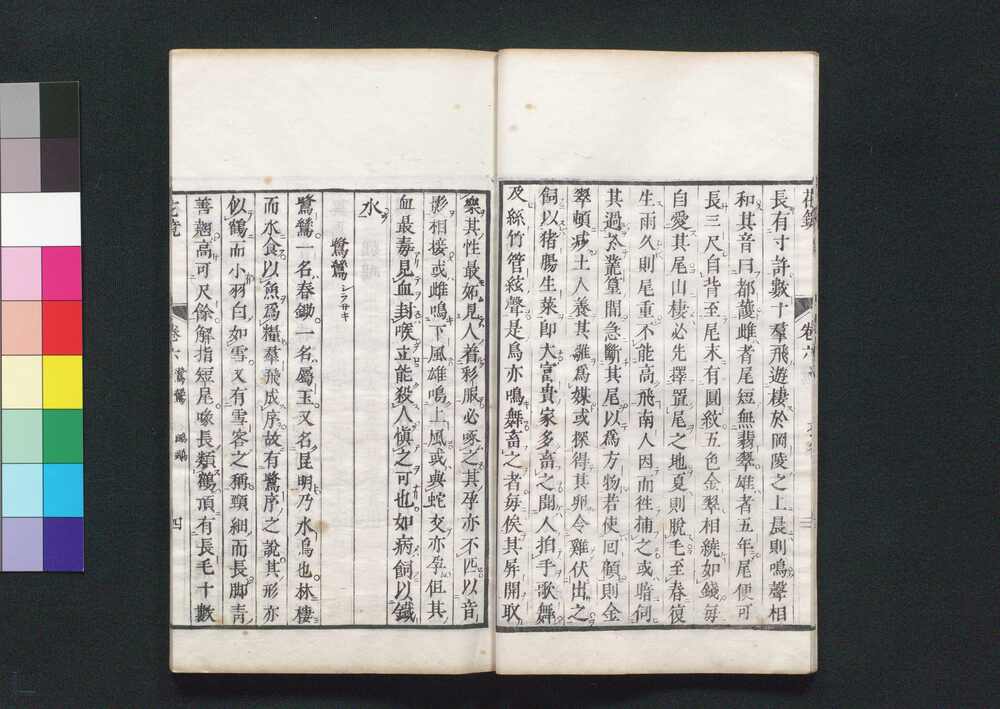 長有寸許數十羣飛遊棲於岡陵之上晨則鳴聲相
和其音曰都護雌者尾短無翡翠雄者五年尾便可
長三尺自背至尾末有圓紋五色金翠相繞如錢每
自愛其尾山棲必先擇置尾之地夏則脫毛至春復
生雨久則尾重不能高飛南人因而徃捕之或暗伺
其過於叢篁間急斷其尾以爲方物若使囘顧則金
翠頓减土人養其雛爲媒或探得其卵令雞伏出之
飼以猪腸生菜卽大富貴家多畜之聞人拍手歌舞
及絲竹管絃聲是鳥亦鳴舞畜之者每俟其屏開取
樂其性最妬見人着彩服必啄之其孕亦不匹以音
影相接或雌鳴下風雄鳴上風或與蛇交亦孕但其
血最毒見血封喉立能殺人愼之可也如病飼以鐵
水
鷺鷥シラサキ
鷺鷥一名春鋤一名屬玉又名昆明乃水鳥也林棲
而水食以魚爲糧羣飛成序故有鷺序之說其形亦
似鶴而小羽白如雪又有雪客之稱頸細而長脚青
善翹高可尺餘解指短尾喙長類鶴頂有長毛十數
卷六 鷺鷥 四